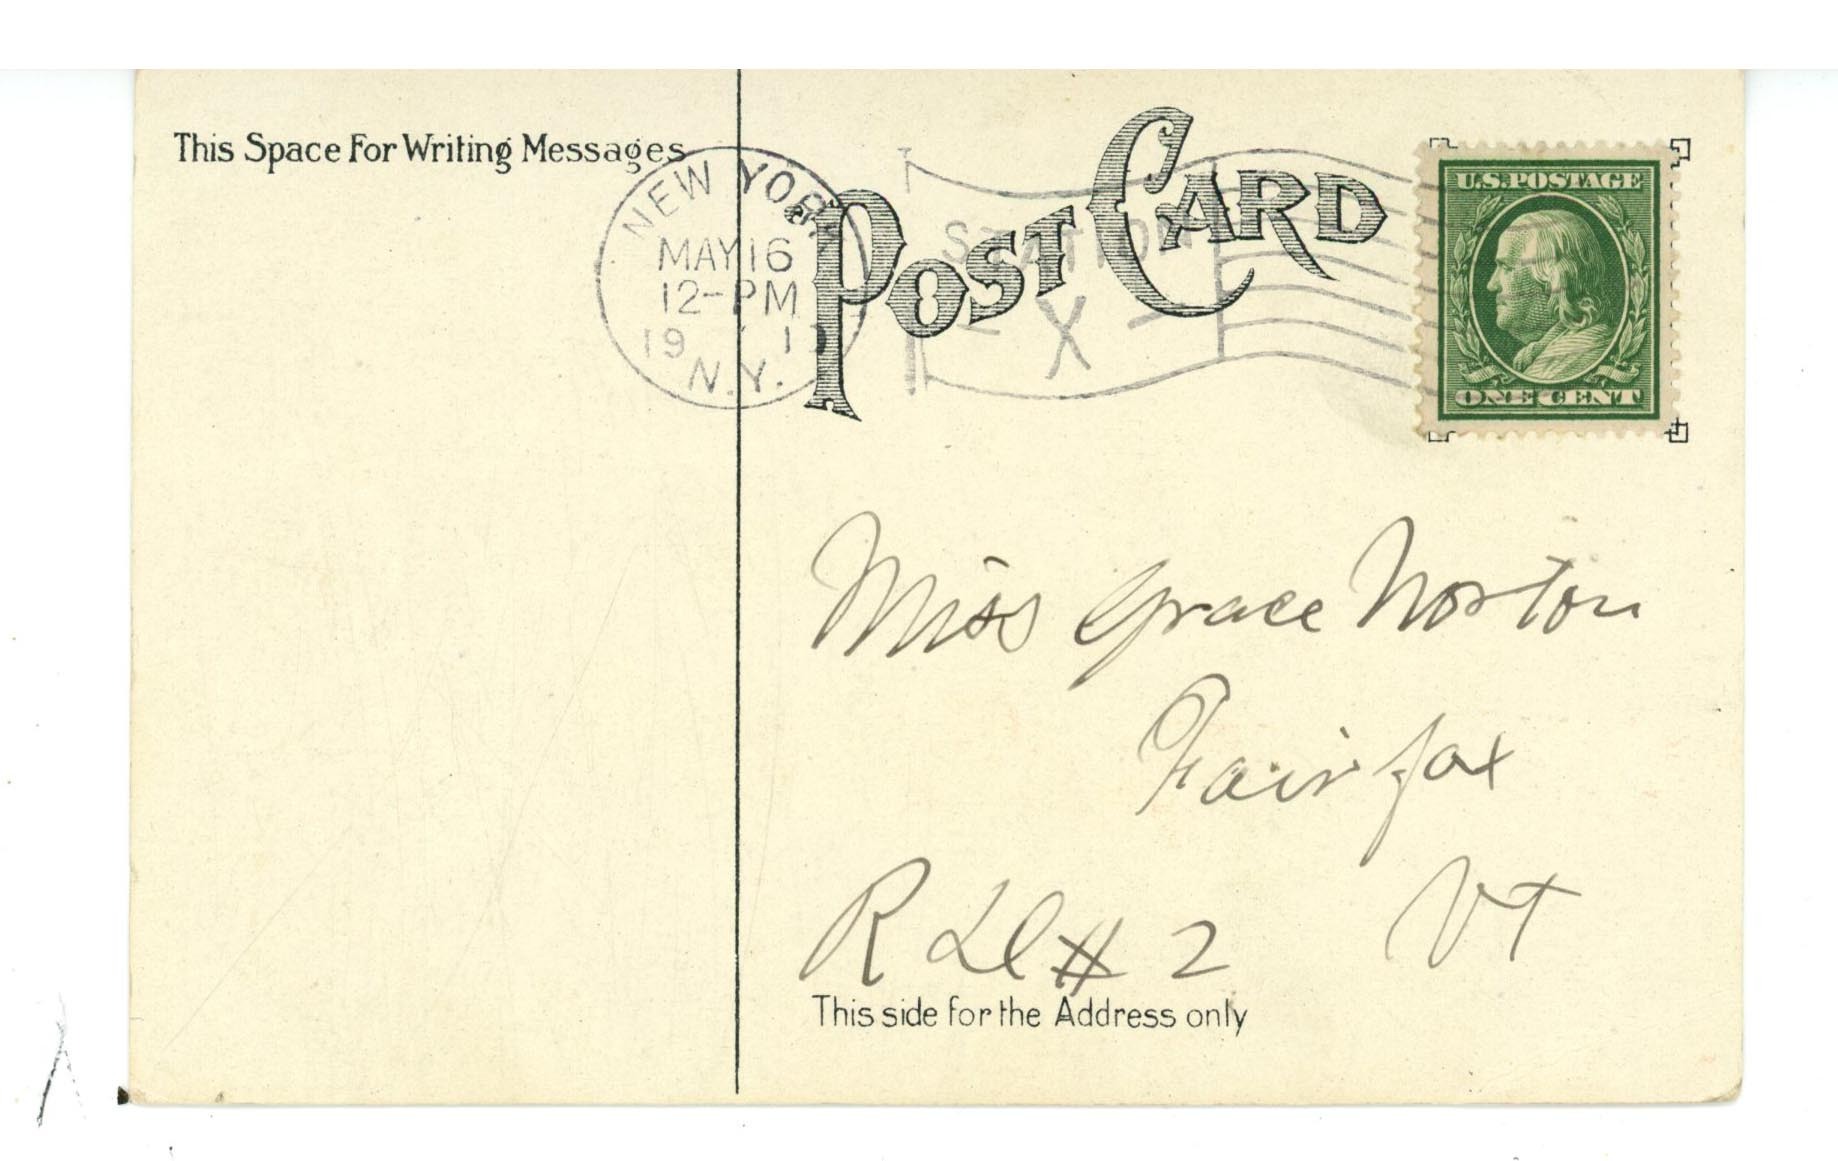 This Space For Writing Messages
POST CARD
NEW YORK
MAY 16
12-PM
19
N.Y.
STATION
X
U.S. POSTAGE
ONE CENT
Miss Grace Norton
Fairfax
R D # 2 Vt
This side for the Address only